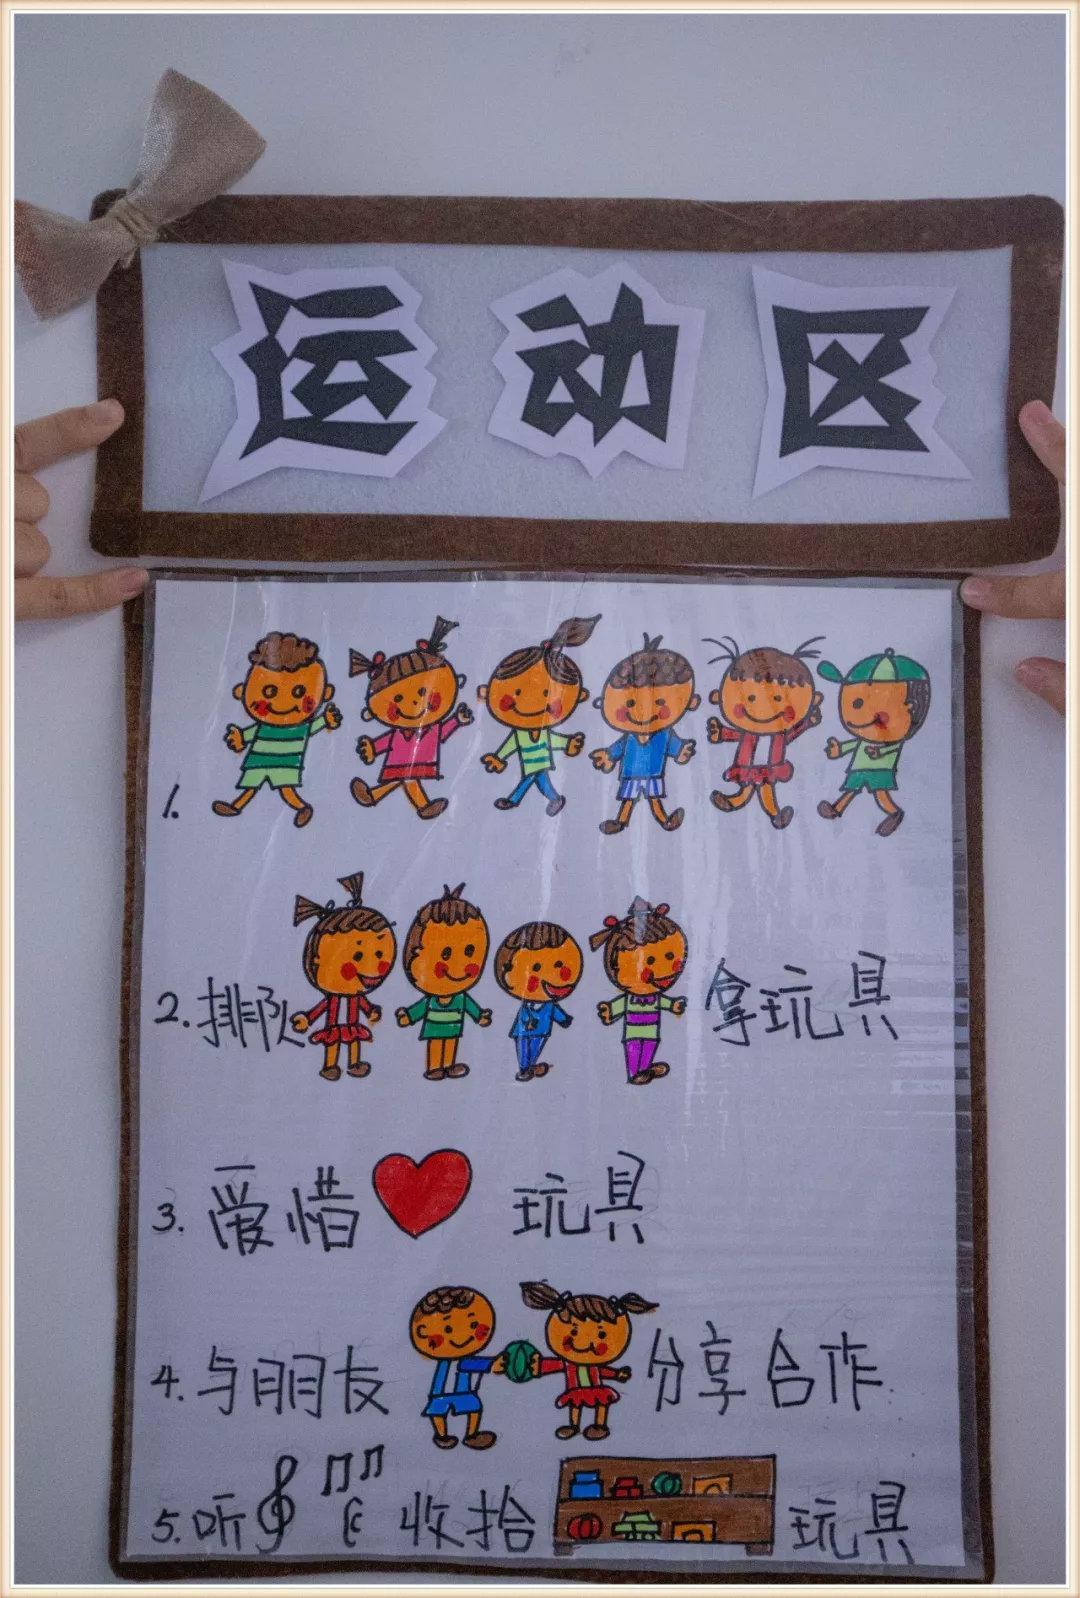 运动区
1.
2.排队 拿玩具
3.爱惜 玩具
4.与朋友 分享合作
5.听 收拾 玩具